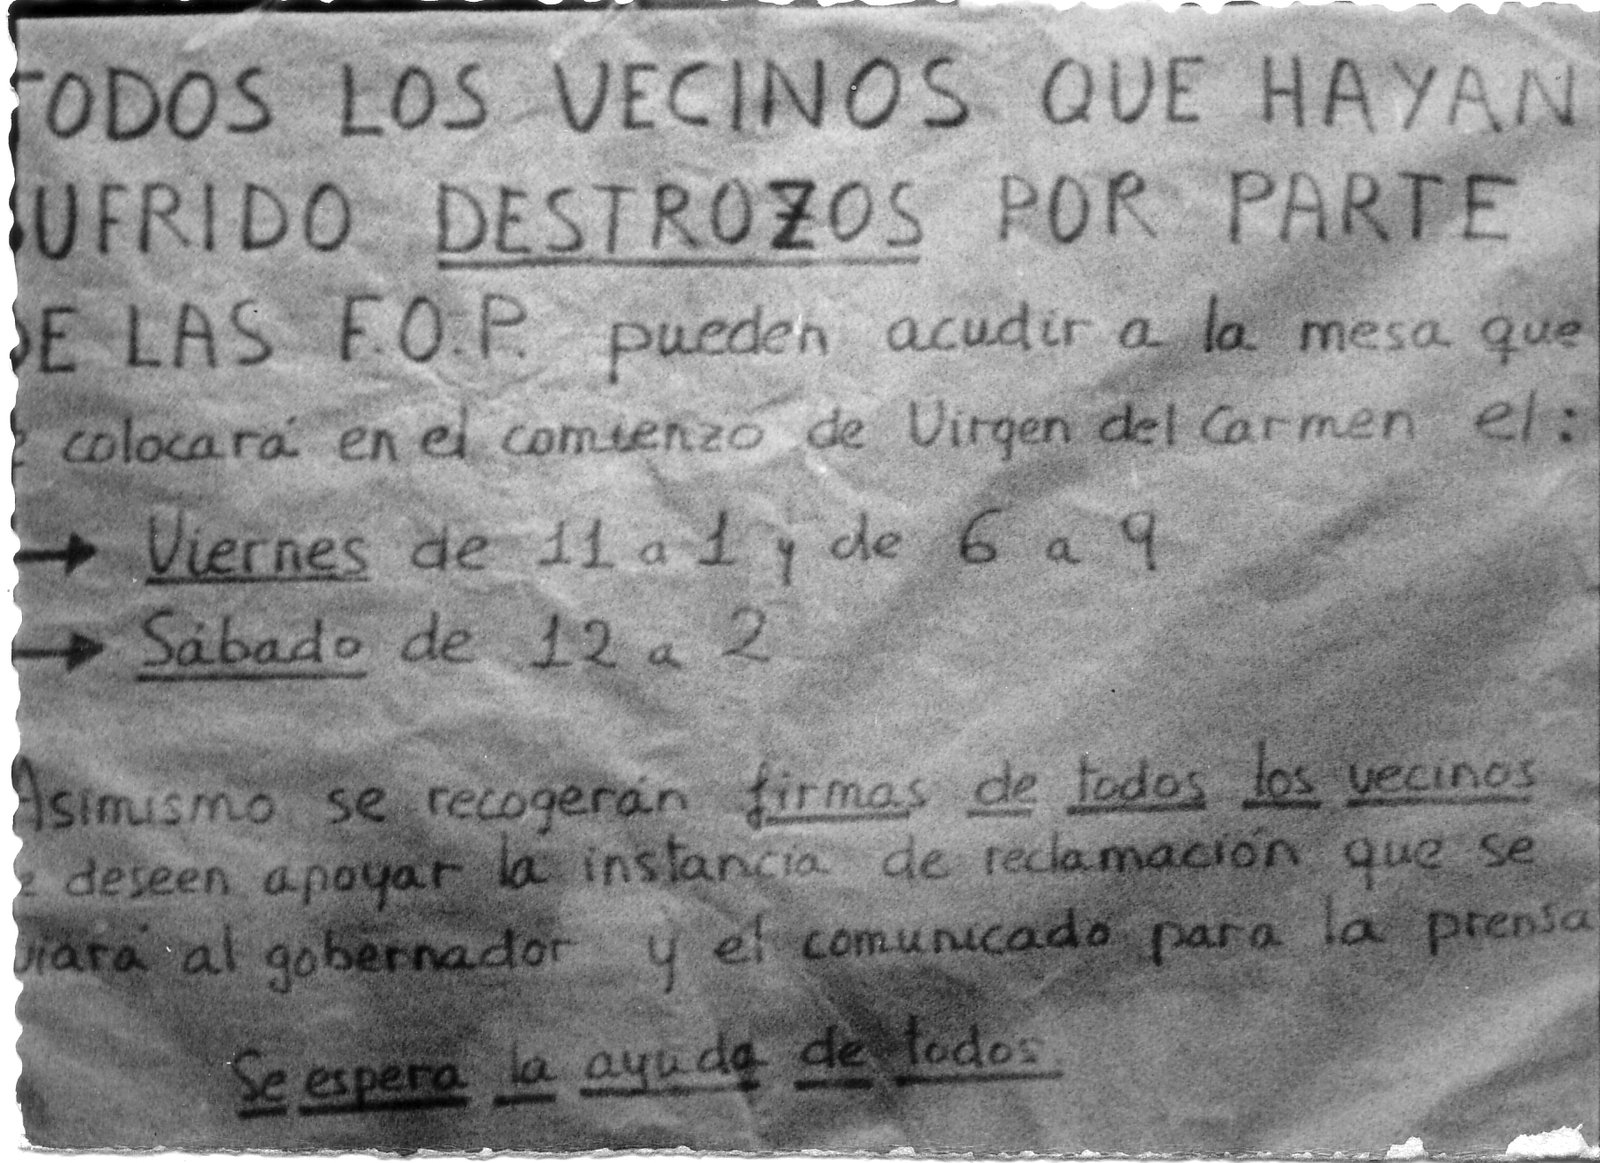 TODOS LOS VECINOS QUE HAYAN
SUFRIDO DESTROZOS POR PARTE
DE LAS F.O.P. pueden acudir a la mesa que
colocará en el comienzo de Virgen del Carmen el:
→ Viernes de 11 a 1 y de 6 a 9
→ Sábado de 12 a 2
Asimismo se recogerán firmas de todos los vecinos
e deseen apoyar la instancia de reclamación que se
viará al gobernador y el comunicado para la prensa
Se espera la ayuda de todos.